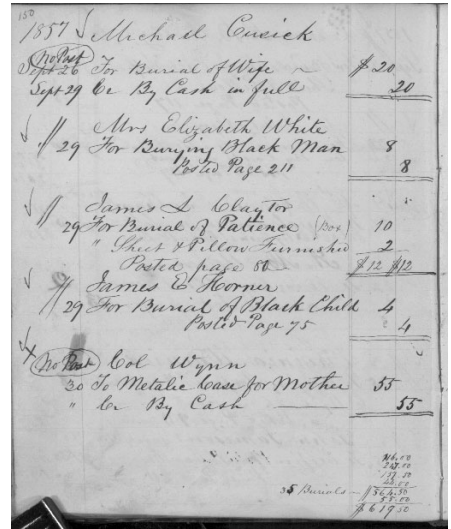 150
1857 Michael Cusick
No Post
Sept 26 For Burial of Wife ~ $20
Sept 29 Cr By Cash in full 20
Mrs Elizabeth White
" 29 For Burying Black Man 8
Posted Page 211 8
James L Claytor
" 29 For Burial of Patience (Box) 10
" Sheet & Pillow Furnished 2
Posted page 80 $12 $12
James E Horner
" 29 For Burial of Black Child 4
Posted Page 75 4
No Post Col Wynn
30 To Metalic Case for Mother 55
" Cr By Cash 55
35 Burials
55.00
$619.50